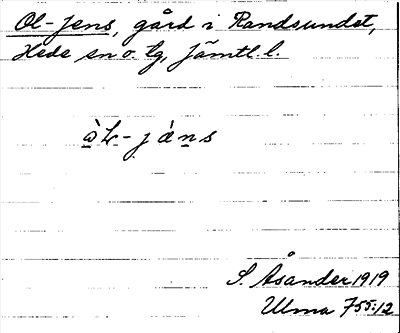 Ol-Jens, gård i Randsundet,
Hede sn o. tg, Jämtl. l.
S. Åsander 1919
Ulma 755:12